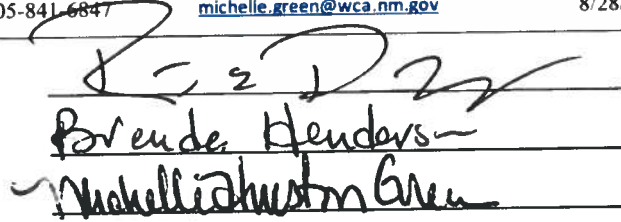 05-841-6847 michelle.green@wca.nm.gov 8/28
Brenda Henderson
Michelle Johnston Green